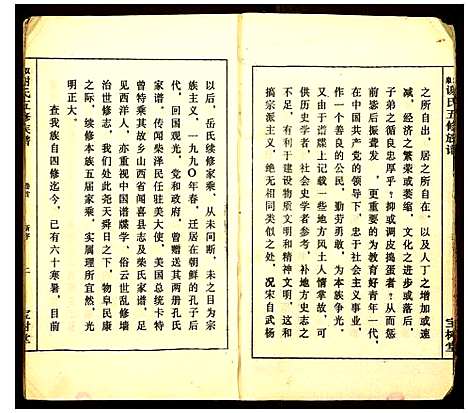 谢氏五修族谱
宝树堂
之所自出，居之所自在，以及人丁之增
减，经济之繁荣或萎缩，文化之进步或落后，
子弟之循良忠厚乎？抑或调皮捣蛋者？承
前毖后振聋发，更重要的为教育好青年一代，
在中国共产党的领导下，忠于社会主义事业，
作一个善良的公民，勤劳勇敢，为本族争光。
又由于谱牒上记载一些地方风土人情掌故，可
供历史学者，社会史学者参考，补地方史志之
不足，有利于建设物质文明和精神文明，这和
搞宗派主义，绝无相同类似之处，况宋自武杨
以后，岳氏续修家乘，从未问断，未之目为宗
族主义，一九九〇年春，迁居在朝鲜的孔子后
代，回国观光，党和政府，曾赠送其两册孔氏
家谱。传闻柴泽民任驻美大使，美国总统卡特
曾特乘其故乡山西省闻喜县志及柴氏家谱，足
见西洋人，亦重视中国谱牒学，俗云世乱修墙
治世修志，我们处此尧天舜日之下，物阜民康
之际，续修本族五届家乘，实属理所当然，
明正大。
查我族自四修迄今，已有六十寒暑，目前
谢氏五修族谱
卷首
二
宝树堂